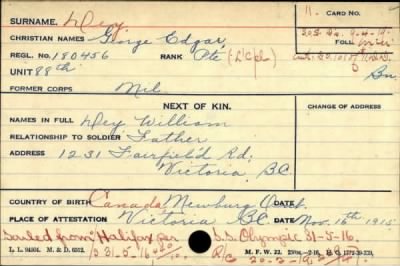 SURNAME. Dey.
11. CARD NO.
CHRISTIAN NAMES George Edgar,
REGL. NO. 180456 RANK Pte (L/Cpl)
FOLL
UNIT 88th Bn.
FORMER CORPS Nil.
NEXT OF KIN.
CHANGE OF ADDRESS
NAMES IN FULL Dey William
RELATIONSHIP TO SOLDIER Father
ADDRESS 1231 Fairfield Rd,
Victoria, B.C.
COUNTRY OF BIRTH Canada Newburg Ont. DATE
PLACE OF ATTESTATION Victoria B.C. DATE Nov. 16th 1915
Sailed from Halifax per S.S. Olympic 31-5-16.
31-5-16 R/C 20-2-19
M. F. W. 22.